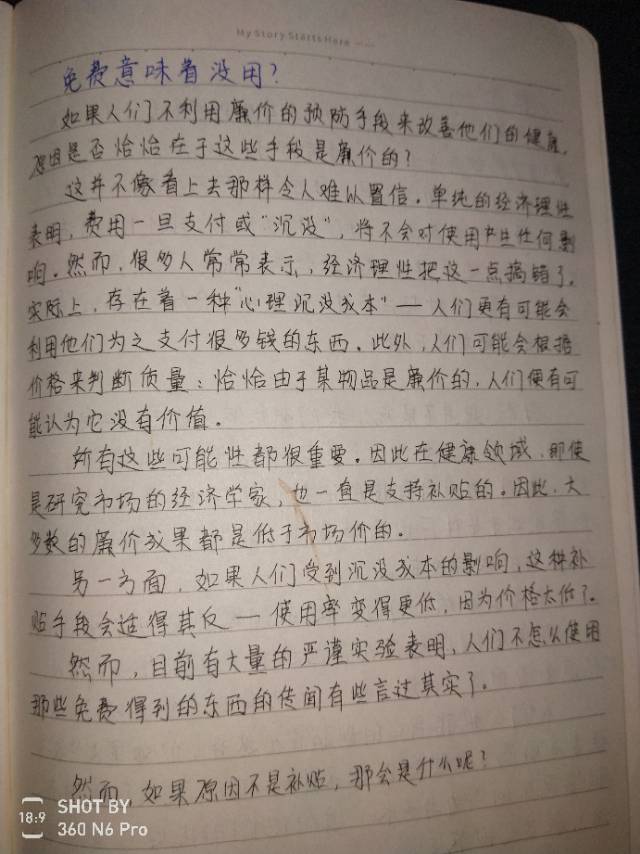 My Story Starts Here
免费意味着没用?
如果人们不利用廉价的预防手段来改善他们的健康,
原因是否恰恰在于这些手段是廉价的?
这并不像看上去那样令人难以置信。单纯的经济理性
表明,费用一旦支付或“沉没”,将不会对使用产生任何影
响。然而,很多人常常表示,经济理性把这一点搞错了。
实际上,存在着一种“心理沉没成本”——人们更有可能会
利用他们为之支付很多钱的东西。此外,人们可能会根据
价格来判断质量:恰恰由于某物品是廉价的,人们便有可
能认为它没有价值。
所有这些可能性都很重要。因此在健康领域,即使
是研究市场的经济学家,也一直是支持补贴的。因此,大
多数的廉价成果都是低于市场价的。
另一方面,如果人们受到沉没成本的影响,这种补
贴手段会适得其反——使用率变得更低,因为价格太低了。
然而,目前有大量的严谨实验表明,人们不怎么使用
那些免费得到的东西的传闻有些言过其实了。
然而,如果原因不是补贴,那会是什么呢?
18:9
SHOT BY
360 N6 Pro